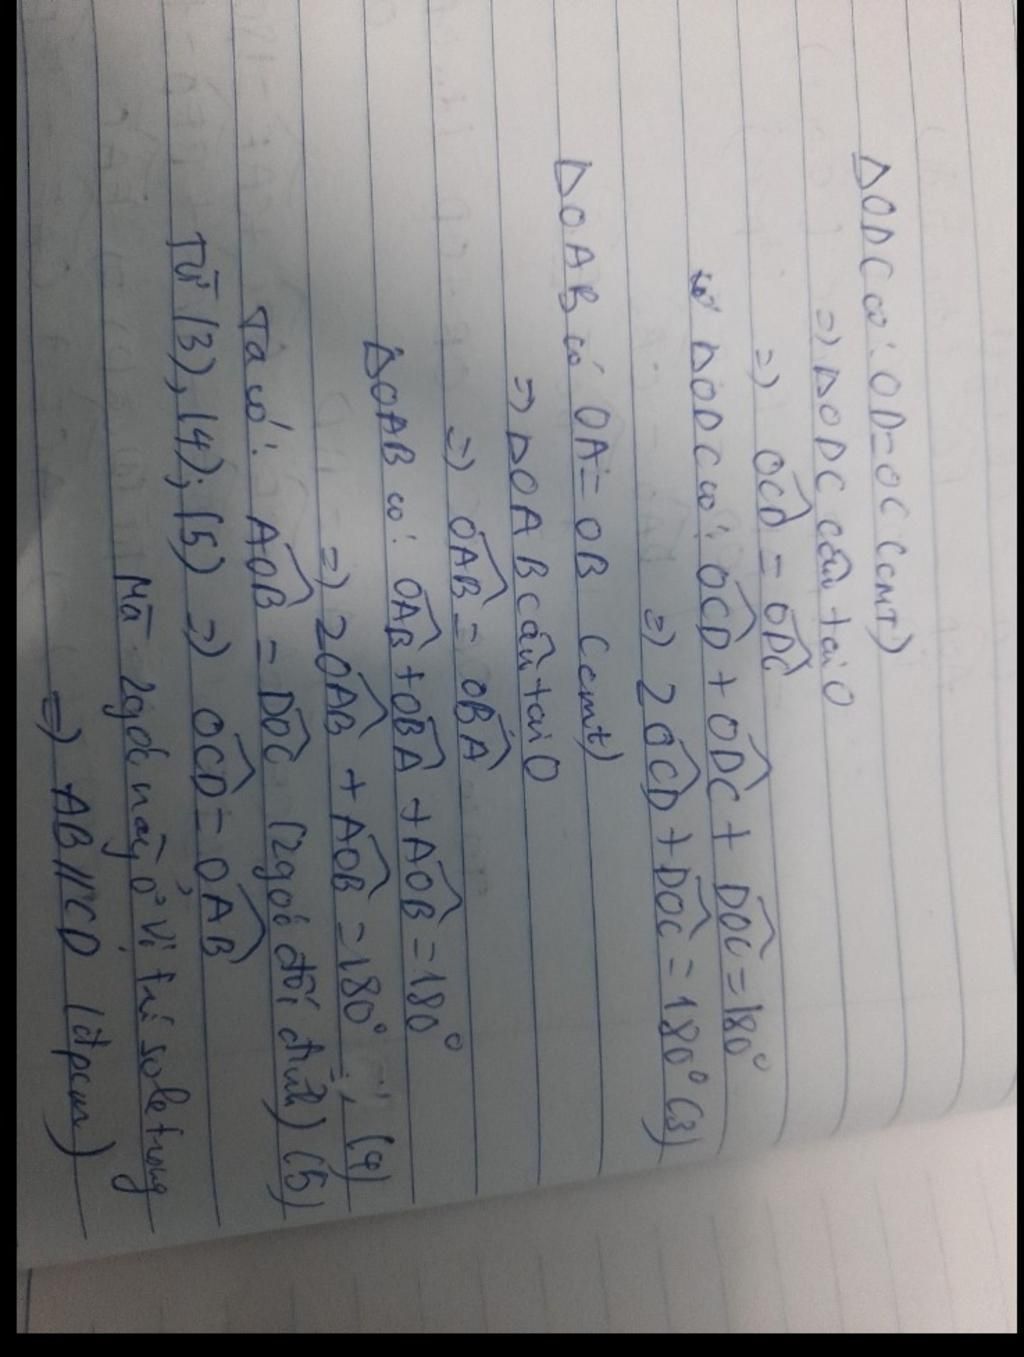 ΔODC có: OD=OC (cmt)
=) ΔODC cân tại O
=) OĈD = OD̂C
ΔODC có: OĈD + OD̂C + DÔC = 180°
=) 2OĈD + DÔC = 180° (3)
ΔOAB có OA = OB (cmt)
=) ΔOAB cân tại O
=) OÂB = OB̂A
ΔOAB có: OÂB + OB̂A + AÔB = 180°
=) 2OÂB + AÔB = 180° (4)
Ta có: AÔB = DÔC (2 góc đối đỉnh) (5)
Từ (3), (4); (5) =) OĈD = OÂB
Mà 2 góc này ở vị trí sole trong
=) AB//CD (đpcm)